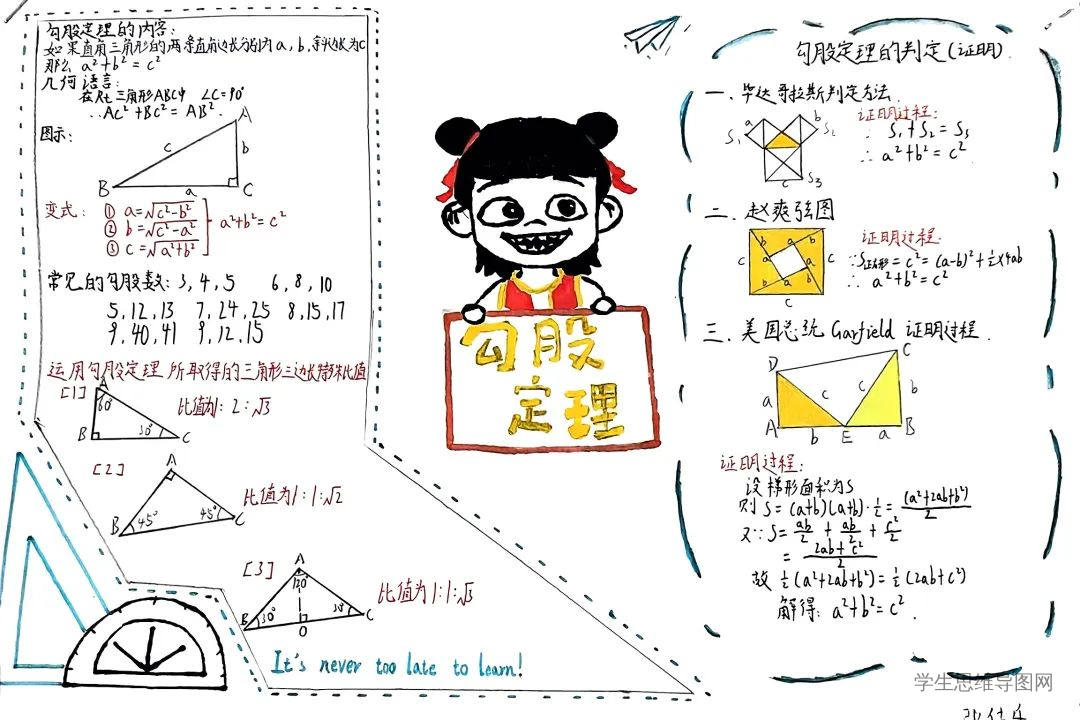 勾股定理的内容:
如果直角三角形的两条直角边长分别为a,b,斜边长为c
那么 a²+b²=c²
几何语言:
在Rt三角形ABC中 ∠C=90°
∴AC²+BC²=AB².
图示:
A
c
b
B
a
C
变式:
① a=√c²-b²
② b=√c²-a²
③ c=√a²+b²
a²+b²=c²
常见的勾股数: 3,4,5 6,8,10
5,12,13 7,24,25 8,15,17
9,40,41 9,12,15
运用勾股定理所取得的三角形三边长特殊比值
[1]
A
60°
B
30°
C
比值为1:2:√3
[2]
A
B
45°
45°
C
比值为1:1:√2
[3]
A
120°
B
30°
O
30°
C
比值为1:1:√3
It's never too late to learn!
勾股
定理
勾股定理的判定(证明)
一.毕达哥拉斯判定方法.
S₁
a
b
S₂
c
S₃
证明过程:
∵ S₁+S₂=S₃
∴ a²+b²=c²
二.赵爽弦图
c
b
a
b
c
a
a
b
a
b
c
证明过程:
∵S正方形=c²=(a-b)²+½×4ab
∴ a²+b²=c²
三.美国总统Garfield证明过程.
D
C
a
c
c
b
A
b
E
a
B
证明过程:
设梯形面积为S
则S=(a+b)(a+b)·½=(a²+2ab+b²)/2
又∵S=ab/2+ab/2+c²/2
=2ab+c²/2
故½(a²+2ab+b²)=½(2ab+c²)
解得:a²+b²=c².
学生思维导图网